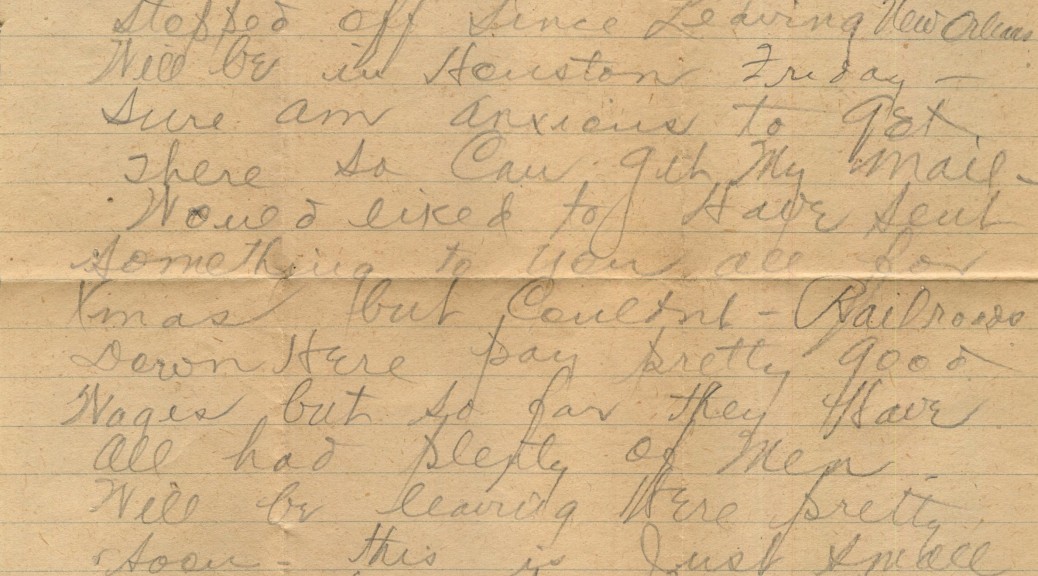 Stopped off Since Leaving New Orleans
Will be in Houston Friday –
Sure am anxious to get
There so Can get My mail –
Would liked to Have sent
something to you all for
Xmas but Couldnt – Railroads
Down Here pay pretty good
Wages but so far they Have
All had plenty of Men
Will be leaving Here pretty
soon – this is Just small